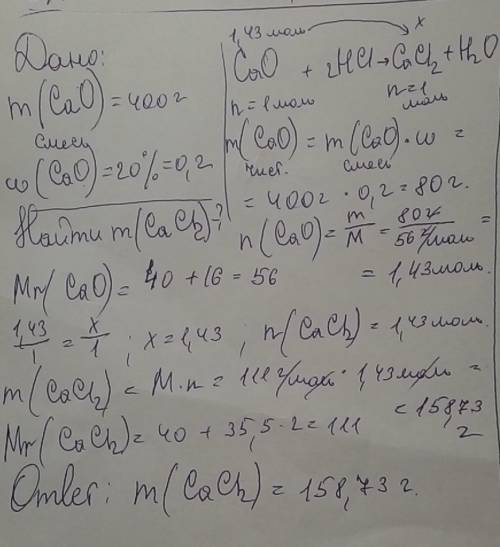 Дано:
m(CaO) = 400 г
смеси
w(CaO) = 20% = 0,2
Найти m(CaCl2) - ?
1,43 моль x
CaO + 2HCl → CaCl2 + H2O
n = 1 моль n = 1 моль
m(CaO) = m(CaO) · w =
чист. смеси
= 400 г · 0,2 = 80 г.
n(CaO) = m/M = 80 г/56 г/моль =
= 1,43 моль.
Mr(CaO) = 40 + 16 = 56
1,43/1 = x/1 ; x = 1,43 ; n(CaCl2) = 1,43 моль.
m(CaCl2) = M · n = 111 г/моль · 1,43 моль =
= 158,73 г
Mr(CaCl2) = 40 + 35,5 · 2 = 111
Ответ: m(CaCl2) = 158,73 г.